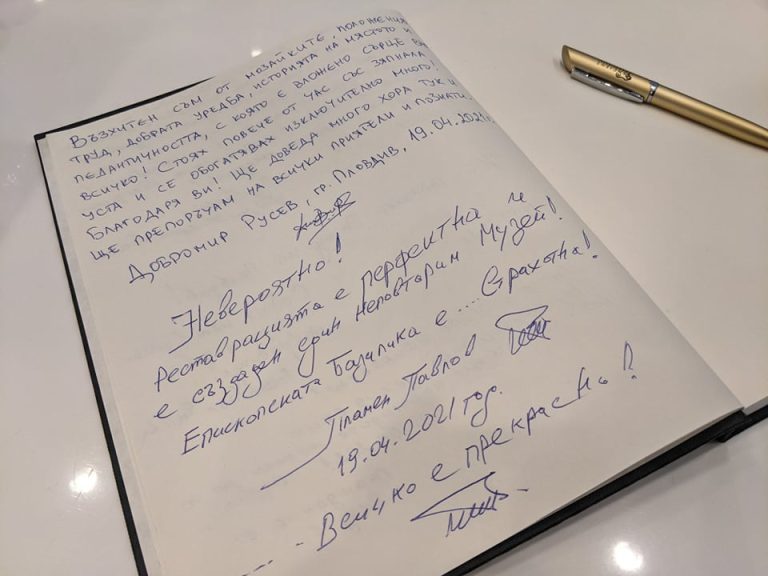 Възхитен съм от мозайките, положения
труд, добрата уредба, историята на мястото и
педантичността, с която е вложено сърце във
всичко! Стоях повече от час със зяпнала
уста и се обогатявах изключително много!
Благодаря Ви! Ще доведа много хора тук и
ще препоръчам на всички приятели и познати.
Добромир Русев, гр. Пловдив, 19.04.2021г.
Невероятно!
Реставрацията е перфектна и
е създаден един неповторим Музей!
Епископската Базилика е ... Страхотна!
Пламен Павлов
19.04.2021 год.
.... Всичко е прекрасно!